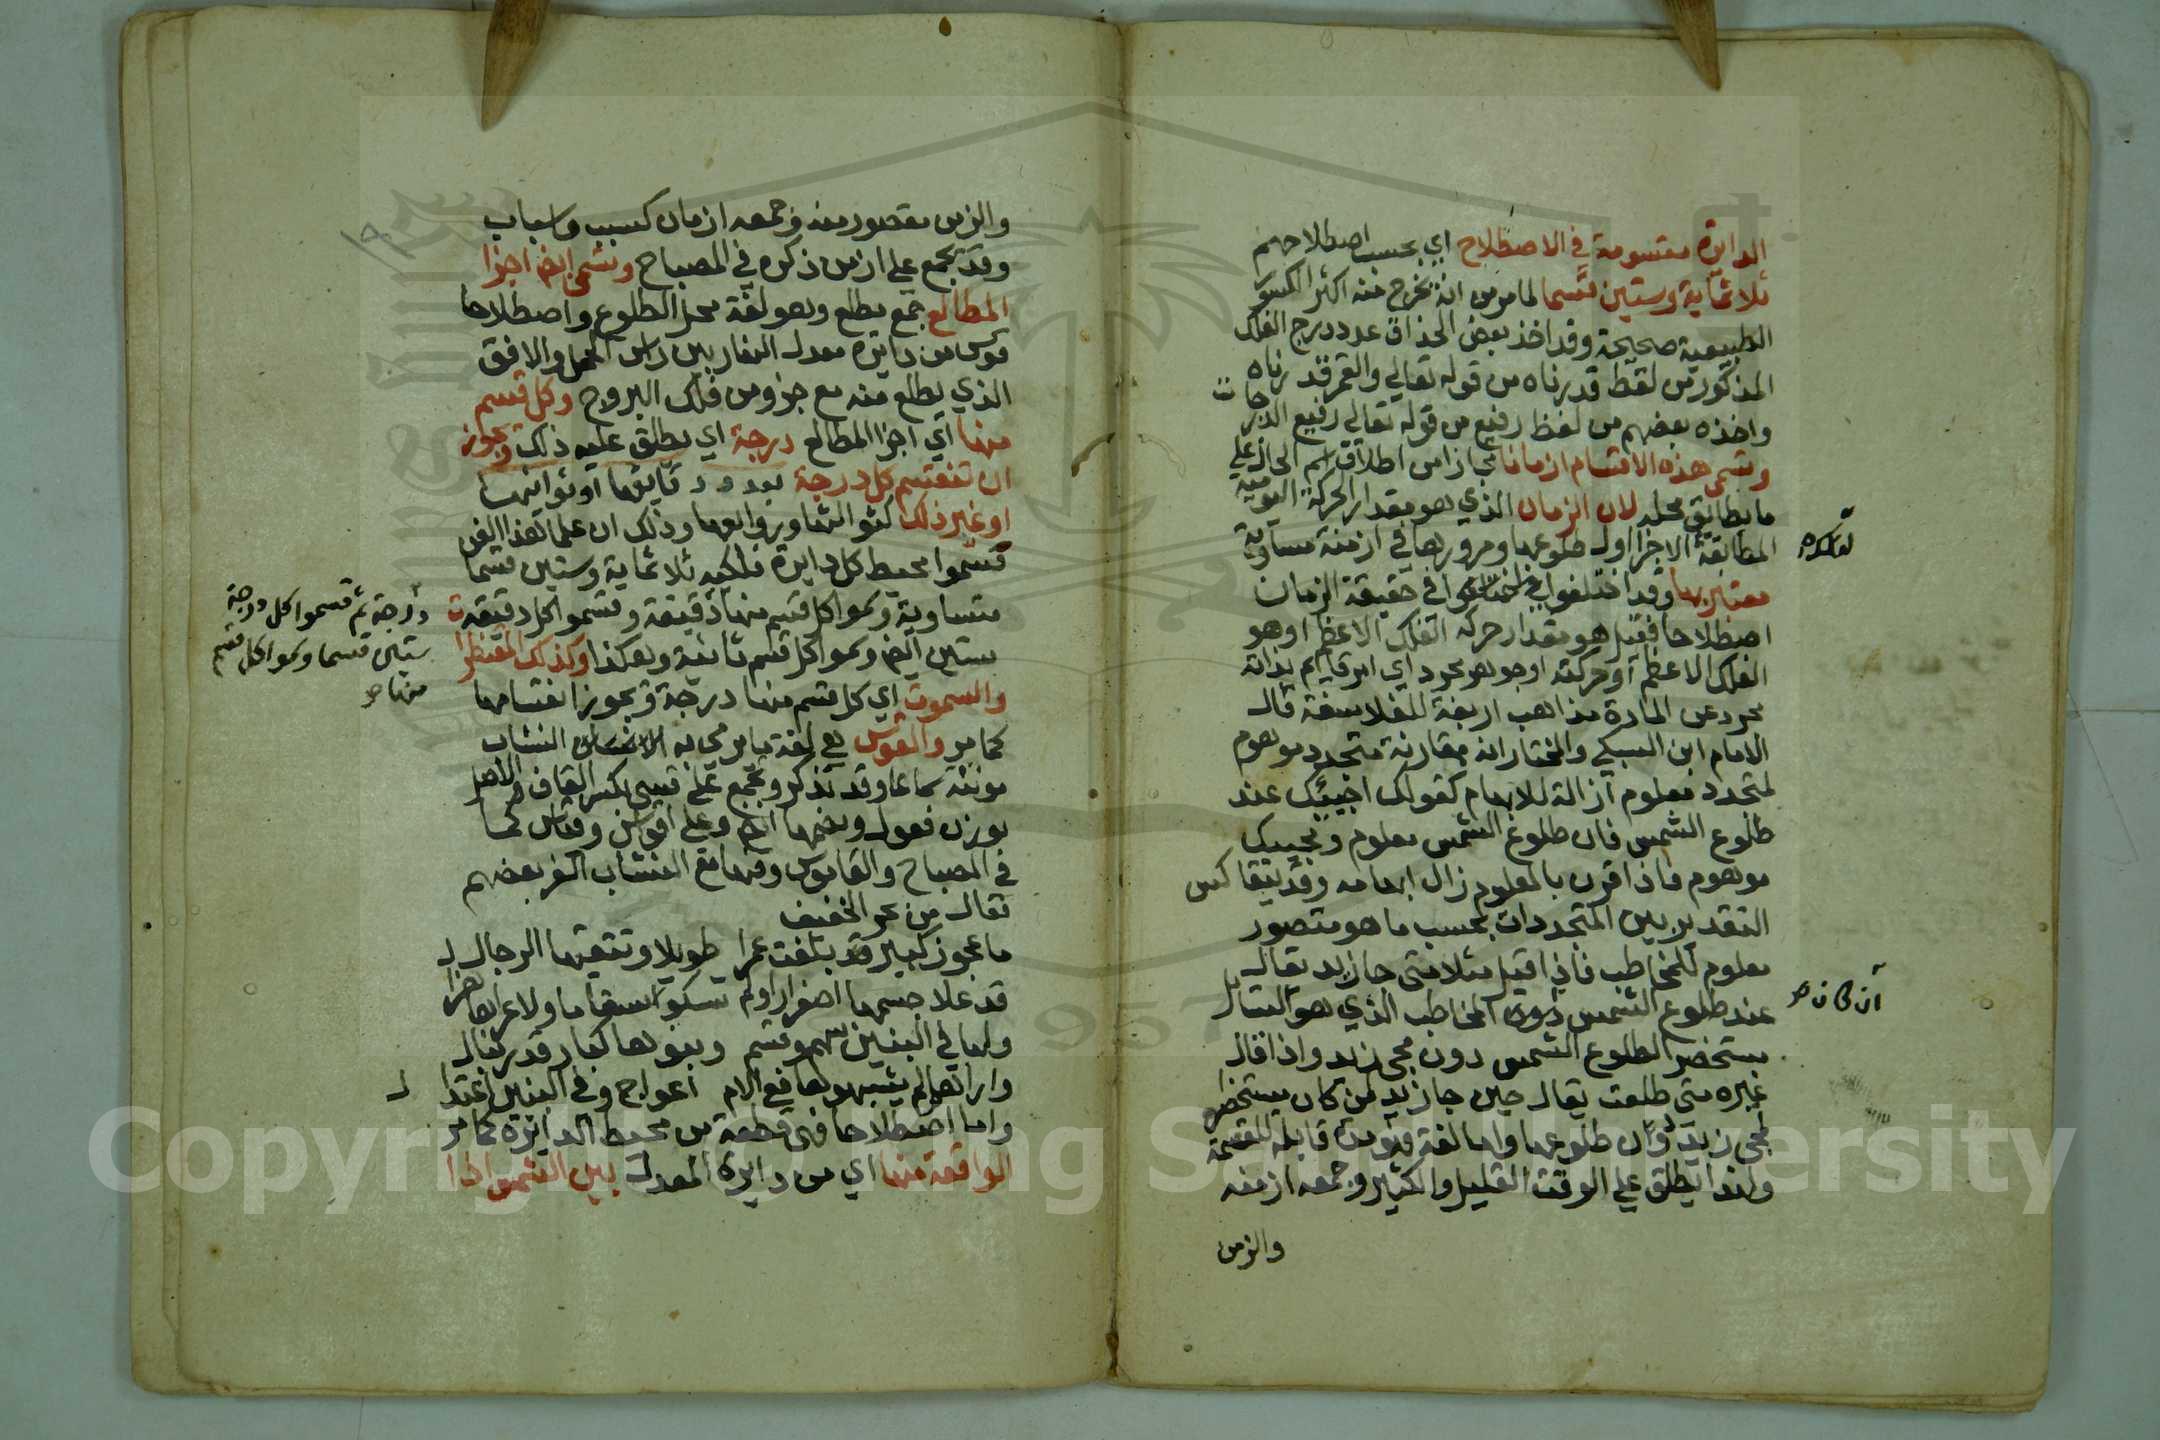 الدايرة مقسومة في الاصطلاح اي بحسب اصطلاحهم
ثلاثماية وستين قسما لما مر من انه يخرج منه اكثر الكسور
الطبيعية صحيحة وقد اخذ بعض الحذاق عدد درج الفلك
المذكور من لفظ قدرناه من قوله تعالي والقمر قدرناه
واخذه بعضهم من لفظ رفيع من قوله تعالي رفيع الدرجات
وتسمي هذه الاقسام ازمانا مجازا من اطلاق اسم الحال علي
ما يطابق محله لان الزمان الذي هو مقدار الحركة اليومية
المطابقة الاجزا اول طلوعها ومرورها في ازمنة متساوية
معتبر بها وقد اختلفوا في حقيقة الزمان
اصطلاحا فقيل هو مقدار حركة الفلك الاعظم او هو
الفلك الاعظم او حركته او جوهر مجرد اي امر قايم بذاته
مجرد عن المادة مذاهب اربعة للفلاسفة قال
الامام ابن السبكي والمختار انه مقارنة متجدد موهوم
لمتجدد معلوم ازالة للابهام كقولك اجيئك عند
طلوع الشمس فان طلوع الشمس معلوم ومجيئك
موهوم فاذا قرن بالمعلوم زال ابهامه وقد يتعاكس
التقدير بين المتجددات بحسب ما هو متصور
معلوم للمخاطب فاذا قيل مثلا متي جا زيد يقال
عند طلوع الشمس المخاطب الذي هو السايل
مستحضر الطلوع الشمس دون مجي زيد واذا قال
غيره متي طلعت يقال حين جا زيد لمن كان مستحضرا
لمجي زيد دون طلوعها واما لغة فهو مدة قابلة للقسمة
ولهذا يطلق علي الوقت القليل والكثير وجمعه ازمنه
والزمن
ان كان صح
والزمن مقصور منه وجمعه ازمان كسبب واسباب
وقد يجمع علي ازمن ذكره في المصباح وتسمي ايضا اجزا
المطالع جمع مطلع وهو لغة محل الطلوع واصطلاحا
قوس من دايرة معدل النهار بين راس الحمل والافق
الذي يطلع منه مع جزو من فلك البروج وكل قسم
منها اي اجزا المطالع درجة اي يطلق عليه ذلك ويجوز
ان تقسم كل درجة بعدد دقايقها او ثوانيها
او غير ذلك كثوالثها وروابعها وذلك ان علما هذا الفن
قسموا محيط كل دايرة فلكيه ثلاثماية وستين قسما
متساوية وسموا كل قسم منها دقيقة وقسموا كل دقيقة
ستين ايضا وسموا كل قسم ثانية وهكذا وكذلك المقنطرات
والسموت اي كل قسم منها درجة ويجوز انقسامها
كما مر والقوس هي لغة ما يرمي به النشاب
مونثة سماعا وقد تذكر وتجمع علي قسي بكسر القاف والاصل
بوزن فعول وبضمها ايضا وعلي اقواس وقياس كما
في المصباح والقاموس وفيها مع النشاب الغز بعضهم
فقال من بحر الخفيف
ما عجوز كبيرة بلغت عمرا طويلا وتتقيها الرجال
قد علا جسمها اصفرار ولم تشكو سقاما ولا عراها هزال
ولها في البنين سهم وقسم وبنوها كبار قدر نبال
واراها لم يشبهوها ففي الام اعوجاج وفي البنين اعتدال
واما اصطلاحا فهي قطعة من محيط الدايرة كما مر
الواقعة منها اي من دايرة المعدل بين الشمس اذا
درجة ثم قسموا كل درجة
ستين قسما وسموا كل قسم
منها صح
Copyright © King Saud University
1957